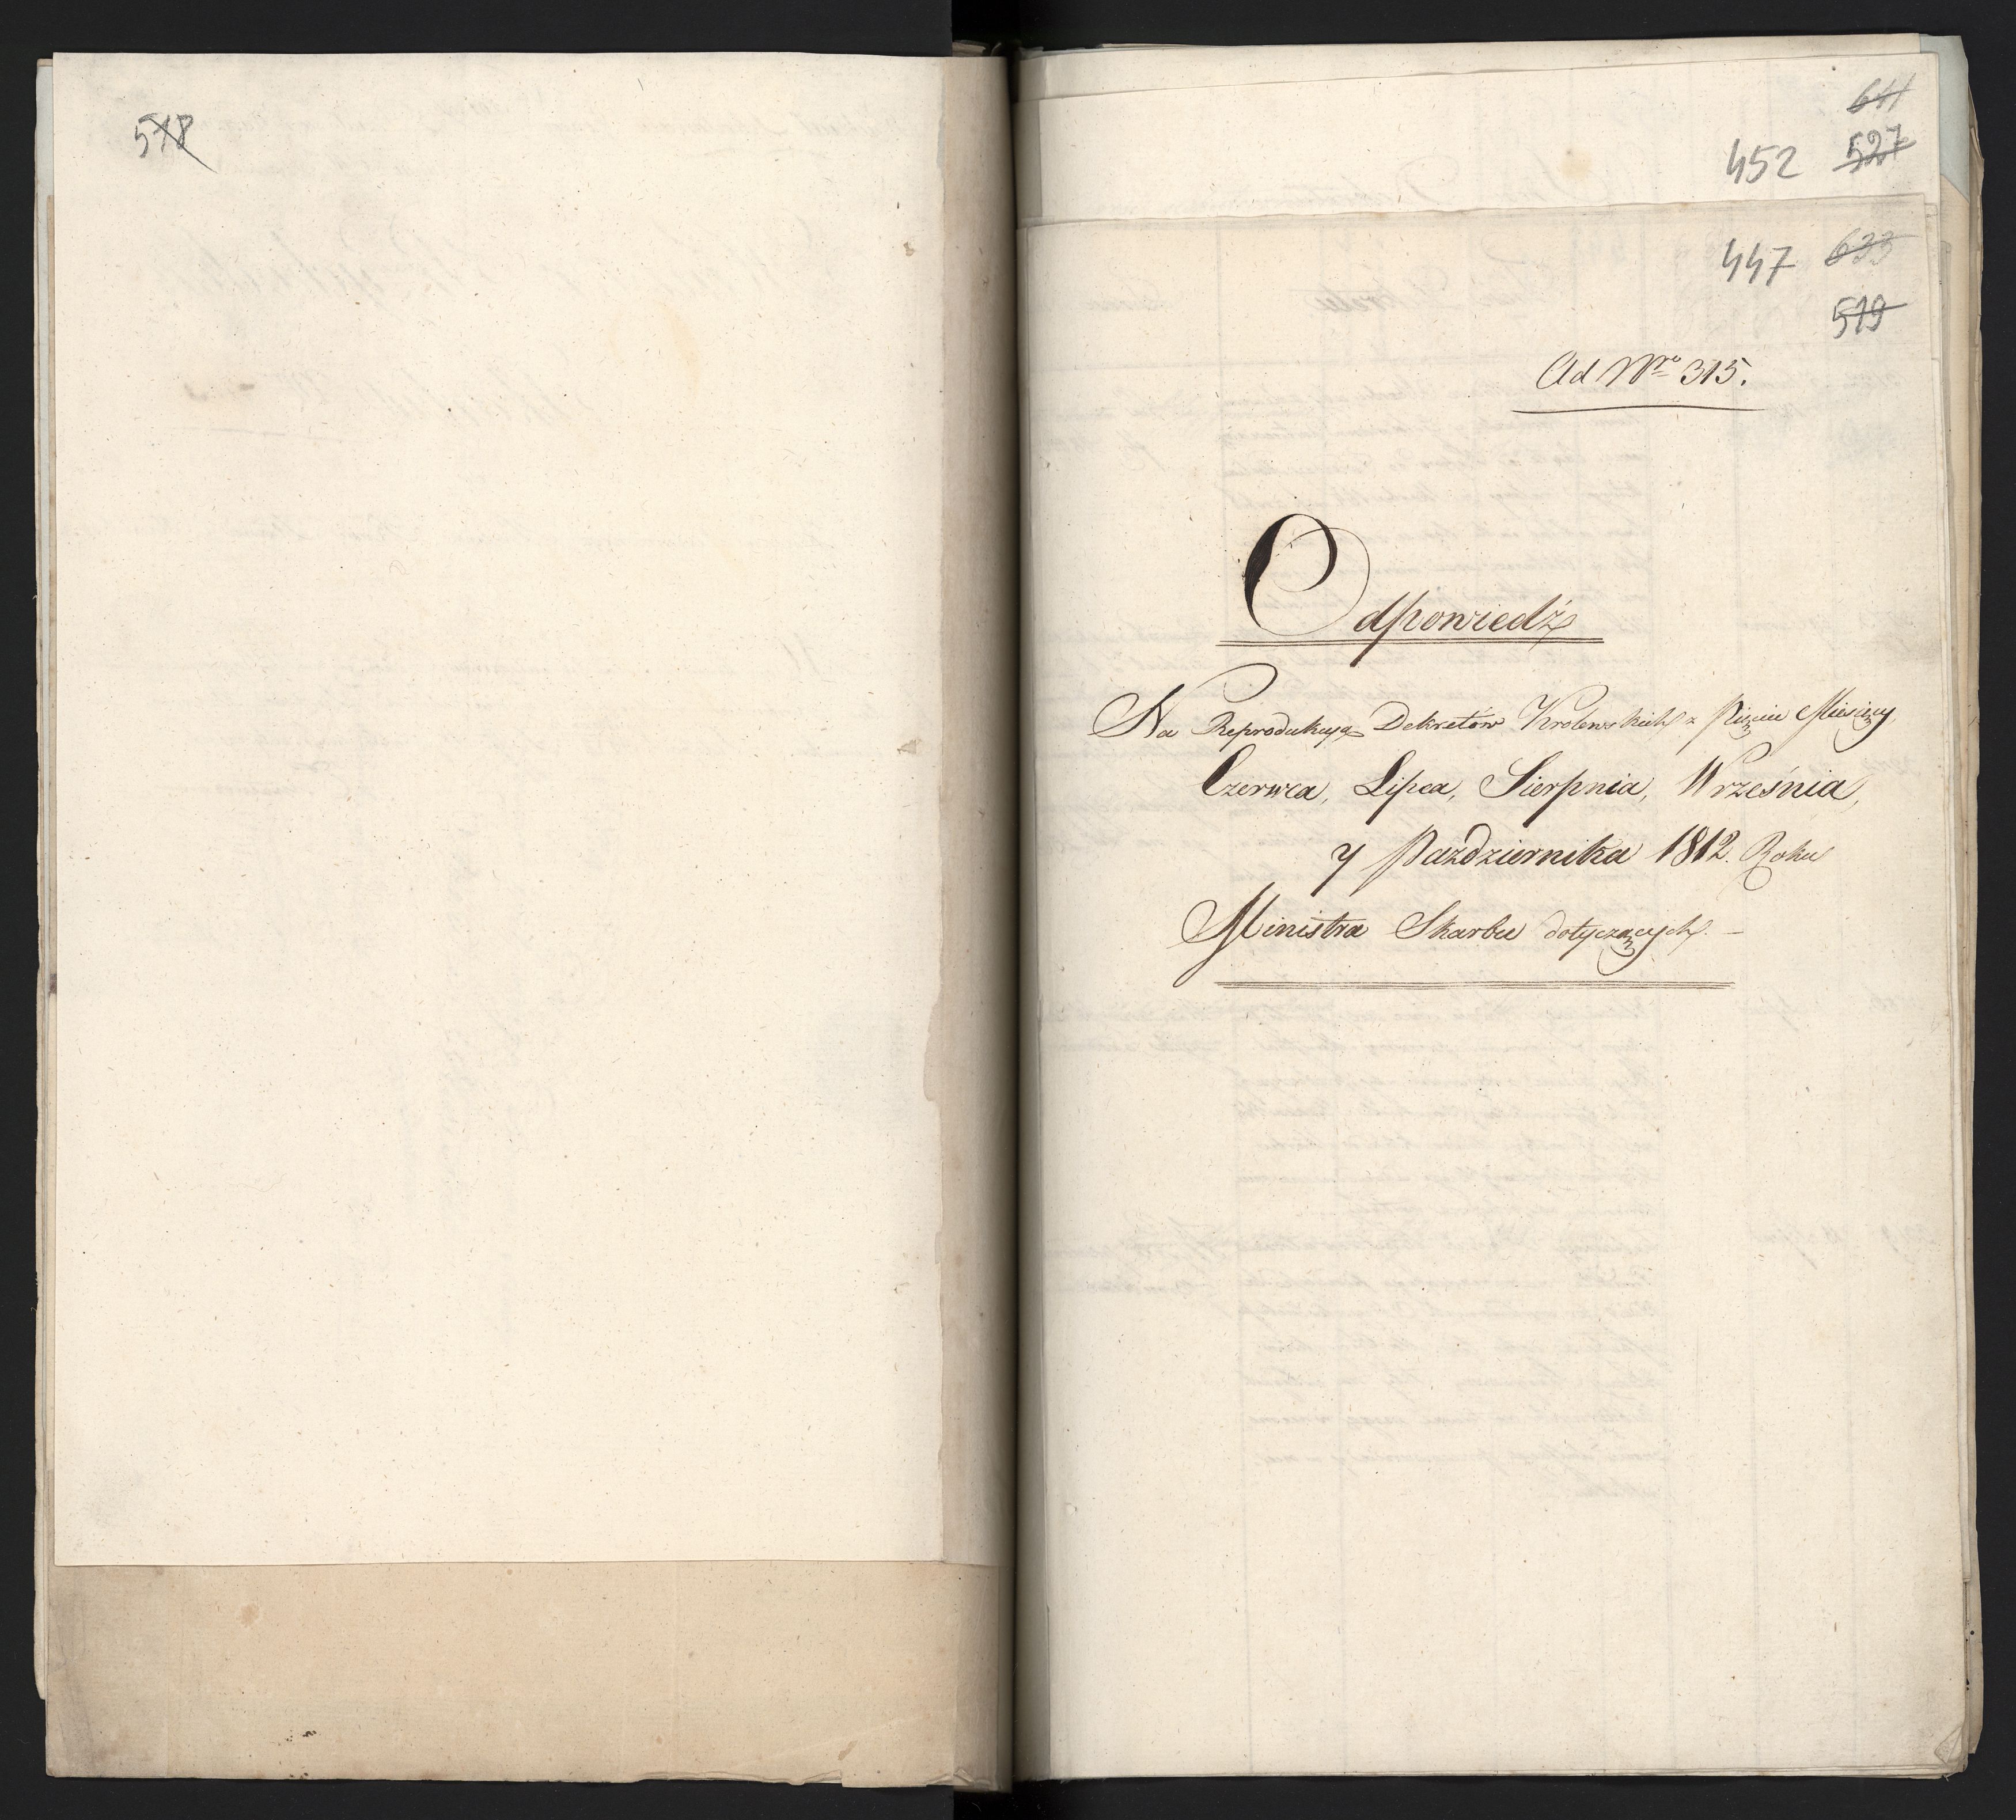 518
641
452 527
447 633
519
Ad Nro 315.
Odpowiedź
Na Reprodukcyą Dekretów Krolewskich z Pięciu Miesięcy
Czerwca, Lipca, Sierpnia, Września,
y Października 1812. Roku
Ministra Skarbu dotyczących. –